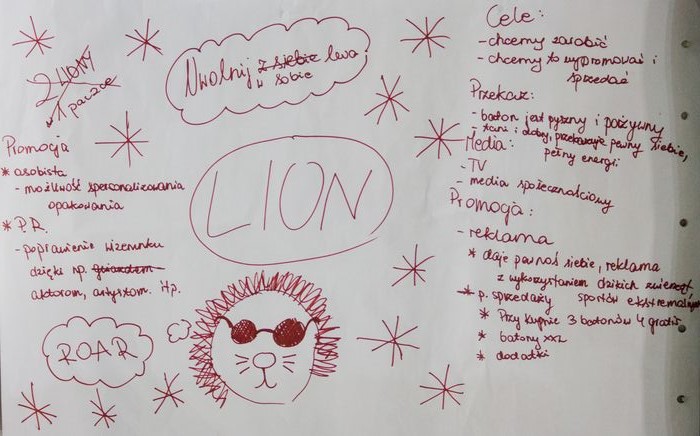 2 LIONY
w 1 paczce
Uwolnij z siebie lwa
w sobie
LION
Promocja
* osobista
- możliwość spersonalizowania
opakowania
* P.R.
- poprawienie wizerunku
dzięki np. gwiazdom
aktorom, artystom. itp.
ROAR
Cele:
- chcemy zarobić
- chcemy to wypromować i
sprzedać
Przekaz:
- baton jest pyszny i pożywny
- tani i dobry, przekazuje pewny siebie,
pełny energii
Media:
- TV
- media społecznościowy
Promocja:
- reklama
* daje pewność siebie, reklama
z wykorzystaniem dzikich zwierząt,
sportów ekstremalnych
* p. sprzedaży
* Przy kupnie 3 batonów 4 gratis
* batony XXL
* dodatki